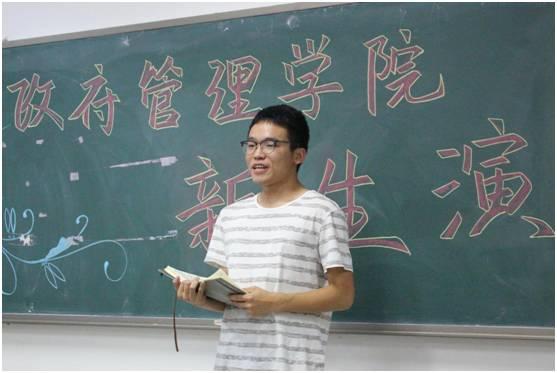 政府管理学院
新生演